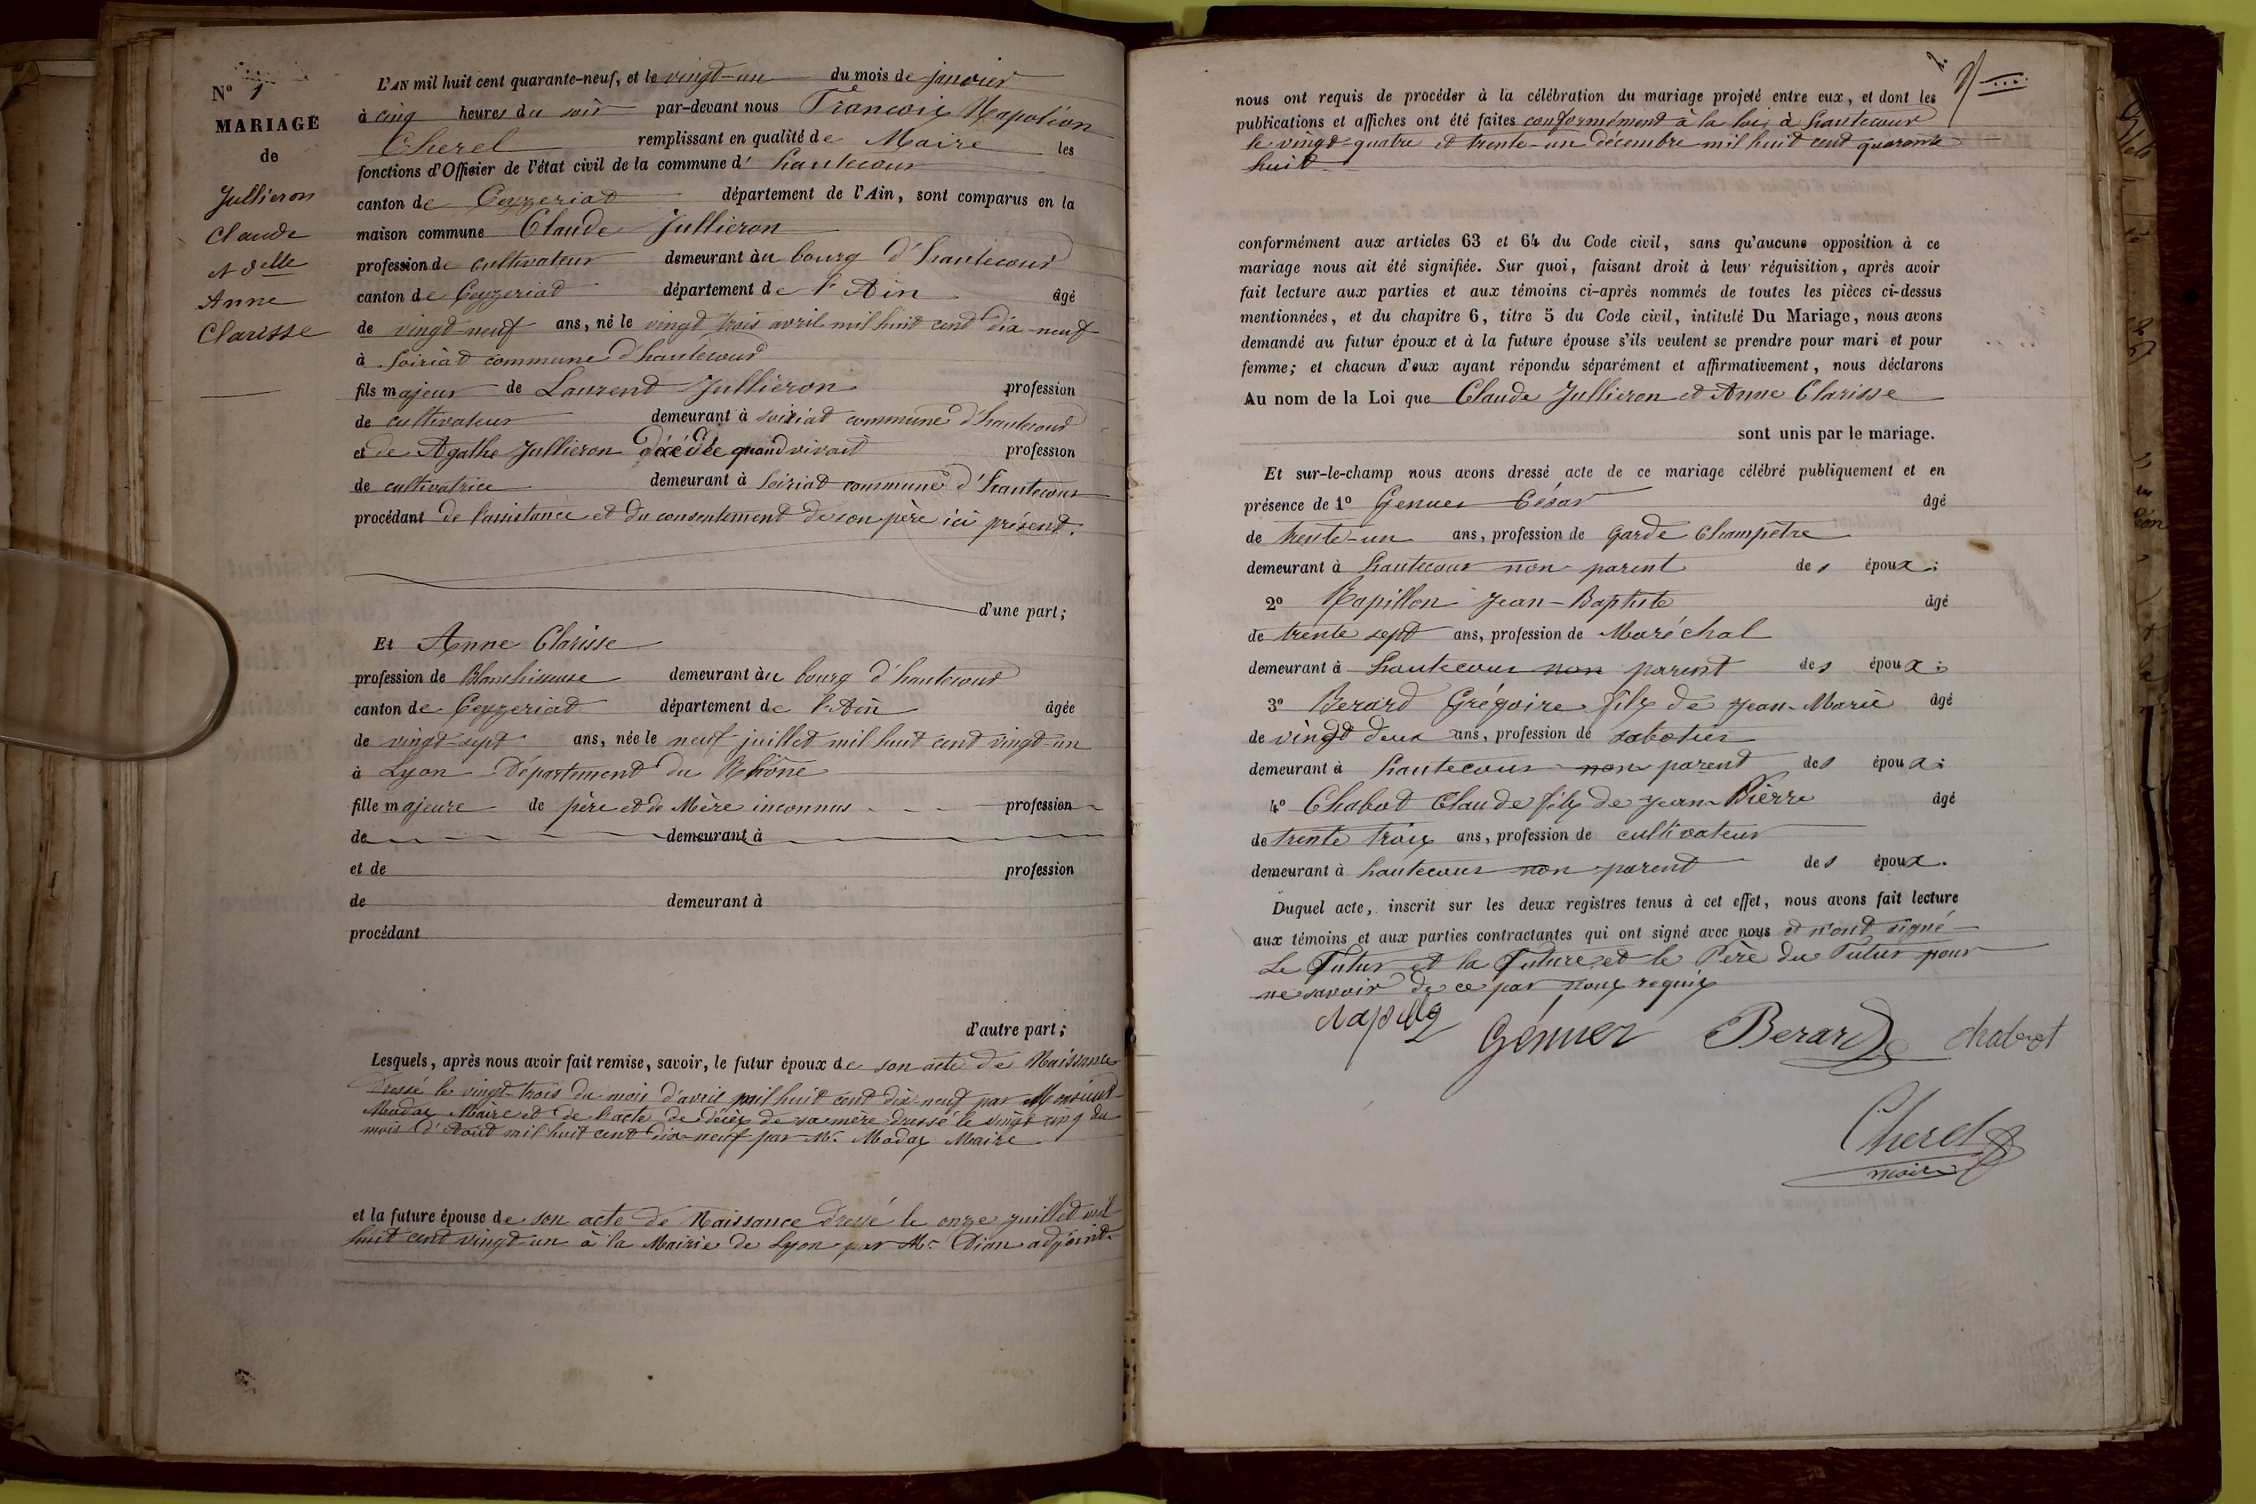 N° 1
MARIAGE
de
Jullieron
Claude
et delle
Anne
Clarisse
L'AN mil huit cent quarante-neuf, et le vingt-un du mois de janvier
à cinq heures du soir par-devant nous Francois Napoléon
Cherel remplissant en qualité de Maire les
fonctions d'Officier de l'état civil de la commune d' hautecour
canton de Ceyzeriat département de l'Ain, sont comparus en la
maison commune Claude Jullieron
profession de cultivateur demeurant au bourg d'hautecour
canton de Ceyzeriat département de l'Ain âgé
de vingt-neuf ans, né le vingt trois avril mil huit cent dix-neuf
à Soiriat commune d'hautecour
fils majeur de Laurent Jullieron profession
de cultivateur demeurant à soiriat commune d'hautecour
et de Agathe Jullieron décédée quand vivait profession
de cultivatrice demeurant à Soiriat commune d'hautecour
procédant de l'assistance et du consentement de son père ici présent.
d'une part;
Et Anne Clarisse
profession de Blanchisseuse demeurant au bourg d'hautecour
canton de Ceyzeriat département de l'Ain âgée
de vingt-sept ans, née le neuf juillet mil huit cent vingt-un
à Lyon Département du Rhône
fille majeure de père et de Mère inconnus profession
de demeurant à
et de profession
de demeurant à
procédant
d'autre part;
Lesquels, après nous avoir fait remise, savoir, le futur époux de son acte de Naissance
Dressé le vingt-trois du mois d'avril mil huit cent dix-neuf par Monsieur
Moday Maire et de l'acte de décès de sa mère dressé le vingt cinq du
mois d'Août mil huit cent dix-neuf par Mr Moday Maire
et la future épouse de son acte de Naissance dressé le onze juillet mil
huit cent vingt-un à la Mairie de Lyon par Mr Dian adjoint.
2.
nous ont requis de procéder à la célébration du mariage projeté entre eux, et dont les
publications et affiches ont été faites conformément à la loi, à hautecour
le vingt-quatre et trente-un décembre mil huit cent quarante
huit
conformément aux articles 63 et 64 du Code civil, sans qu'aucune opposition à ce
mariage nous ait été signifiée. Sur quoi, faisant droit à leur réquisition, après avoir
fait lecture aux parties et aux témoins ci-après nommés de toutes les pièces ci-dessus
mentionnées, et du chapitre 6, titre 5 du Code civil, intitulé Du Mariage, nous avons
demandé au futur époux et à la future épouse s'ils veulent se prendre pour mari et pour
femme; et chacun d'eux ayant répondu séparément et affirmativement, nous déclarons
Au nom de la Loi que Claude Jullieron et Anne Clarisse
sont unis par le mariage.
Et sur-le-champ nous avons dressé acte de ce mariage célébré publiquement et en
présence de 1° Genuer César âgé
de trente-un ans, profession de garde Champêtre
demeurant à hautecour non parent des époux;
2° Napillon Jean-Baptiste âgé
de trente sept ans, profession de Maréchal
demeurant à hautecour non parent des époux;
3° Berard Grégoire fils de Jean-Marie âgé
de vingt deux ans, profession de sabotier
demeurant à hautecour non parent des époux;
4° Chabot Claude fils de Jean-Pierre âgé
de trente trois ans, profession de cultivateur
demeurant à hautecour non parent des époux.
Duquel acte, inscrit sur les deux registres tenus à cet effet, nous avons fait lecture
aux témoins et aux parties contractantes qui ont signé avec nous et n'ont signé
Le Futur et la Future et le Père du Futur pour
ne savoir de ce par nous requis
Génuer Berard chabot
Cherel
maire